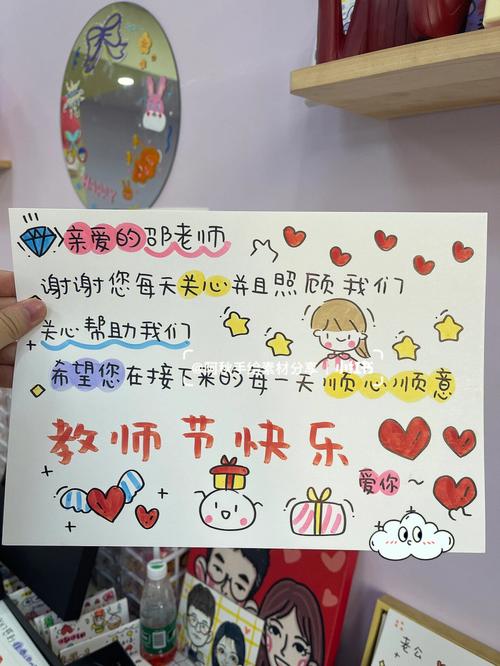 亲爱的邵老师
谢谢您每天关心并且照顾我们
关心帮助我们
@阿秋手绘素材分享
小红书
希望您在接下来的每一天顺心顺意
教师节快乐
爱你~
老公